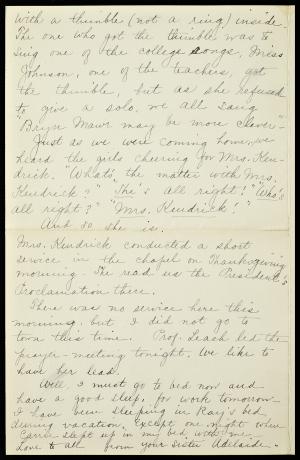 with a thimble (not a ring) inside.
The one who got the thimble was to
sing one of the college songs, Miss
Johnson, one of the teachers, got
the thimble, but as she refused
to give a solo, we all sang
"Bryn Mawr may be more clever"-
Just as we were coming home, we
heard the girls cheering for Mrs. Ken-
drick. "What's the matter with Mrs.
Kendrick?" "She's all right!" "Who's
all right?" "Mrs. Kendrick!"
And so she is.
Mrs. Kendrick conducted a short
service in the chapel on Thanksgiving
morning - She read us the President's
Proclamation there.
There was no service here this
morning, but I did not go to
town this time. Prof. Leach led the
prayer-meeting tonight. We like to
have her lead.
Well, I must go to bed now and
have a good sleep, for work tomorrow -
I have been sleeping in Ray's bed
during vacation, except one night when
Carrie slept up in my bed with me -
Love to all from your sister Adelaide.